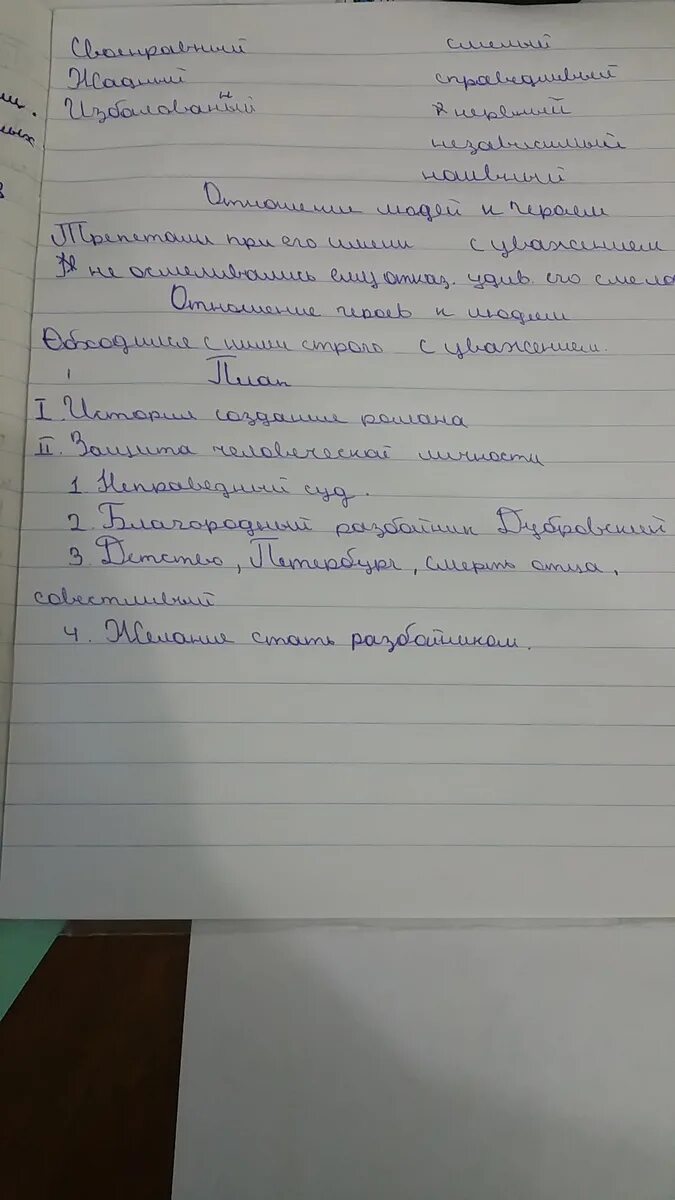 Своенравный смелый
Жадный справедливый
Избалованный нервный
независимый
наивный
Отношение людей к героям
Трепетали при его имени с уважением
не осмеливались ему отказ. удив. его смело
Отношение героев к людям
Обходился с ними строго с уважением.
План
I. История создания романа
II. Защита человеческой личности
1. Неправедный суд.
2. Благородный разбойник Дубровский
3. Детство, Петербург, смерть отца,
совестливый
4. Желание стать разбойником.